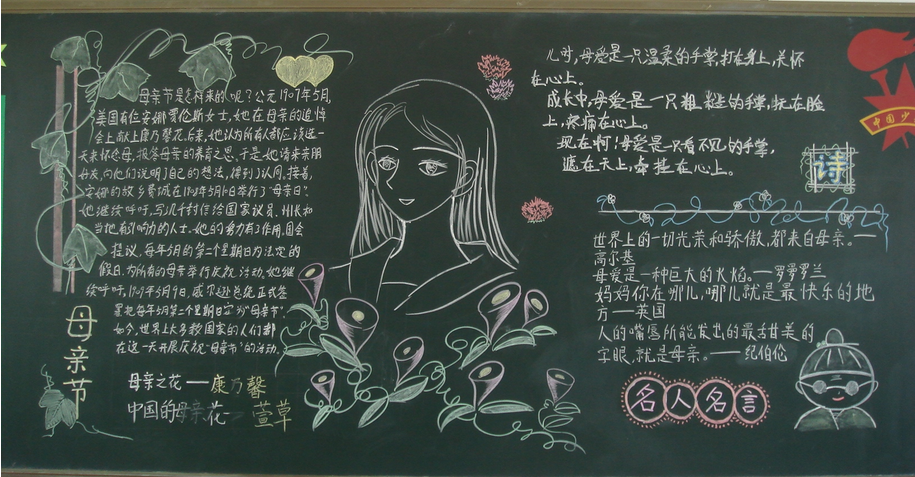 母亲节是怎样来的呢？公元1907年5月,
美国有位安娜贾伦斯女士,她在母亲的追悼
会上献上康乃馨花.后来,她认为所有人都应该选一
天来怀念母,报答母亲的养育之恩,于是她请来亲朋
好友,向他们说明了自己的想法,得到了认同,接着,
安娜的故乡费城在1908年5月10日举行了“母亲日”.
她继续呼吁,写几千封信给国家议员、州长和
当地有影响力的人士.她的努力有了作用,国会
提议,每年5月的第二个星期日为法定的
假日,为所有的母亲举行庆祝活动.她继
续呼吁,19年5月9日,威尔逊总统正式签
署把每年5月第二个星期日定为“母亲节”.
如今,世界上大多数国家的人们都
在这一天开展庆祝“母亲节”的活动.
母亲节
母亲之花——康乃馨
中国的母亲花—萱草
儿时,母爱是一只温柔的手掌,打在身上,关怀
在心上。
成长中,母爱是一只粗糙的手掌,抚在脸
上,疼痛在心上。
现在啊!母爱是一只看不见的手掌,
遮在天上,牵挂在心上。
诗
中国少
世界上的一切光荣和骄傲,都来自母亲。—
高尔基
母爱是一种巨大的火焰。—罗曼罗兰
妈妈你在哪儿,哪儿就是最快乐的地
方——英国
人的嘴唇所能发出的最甜美的
字眼,就是母亲。—纪伯伦
名人名言